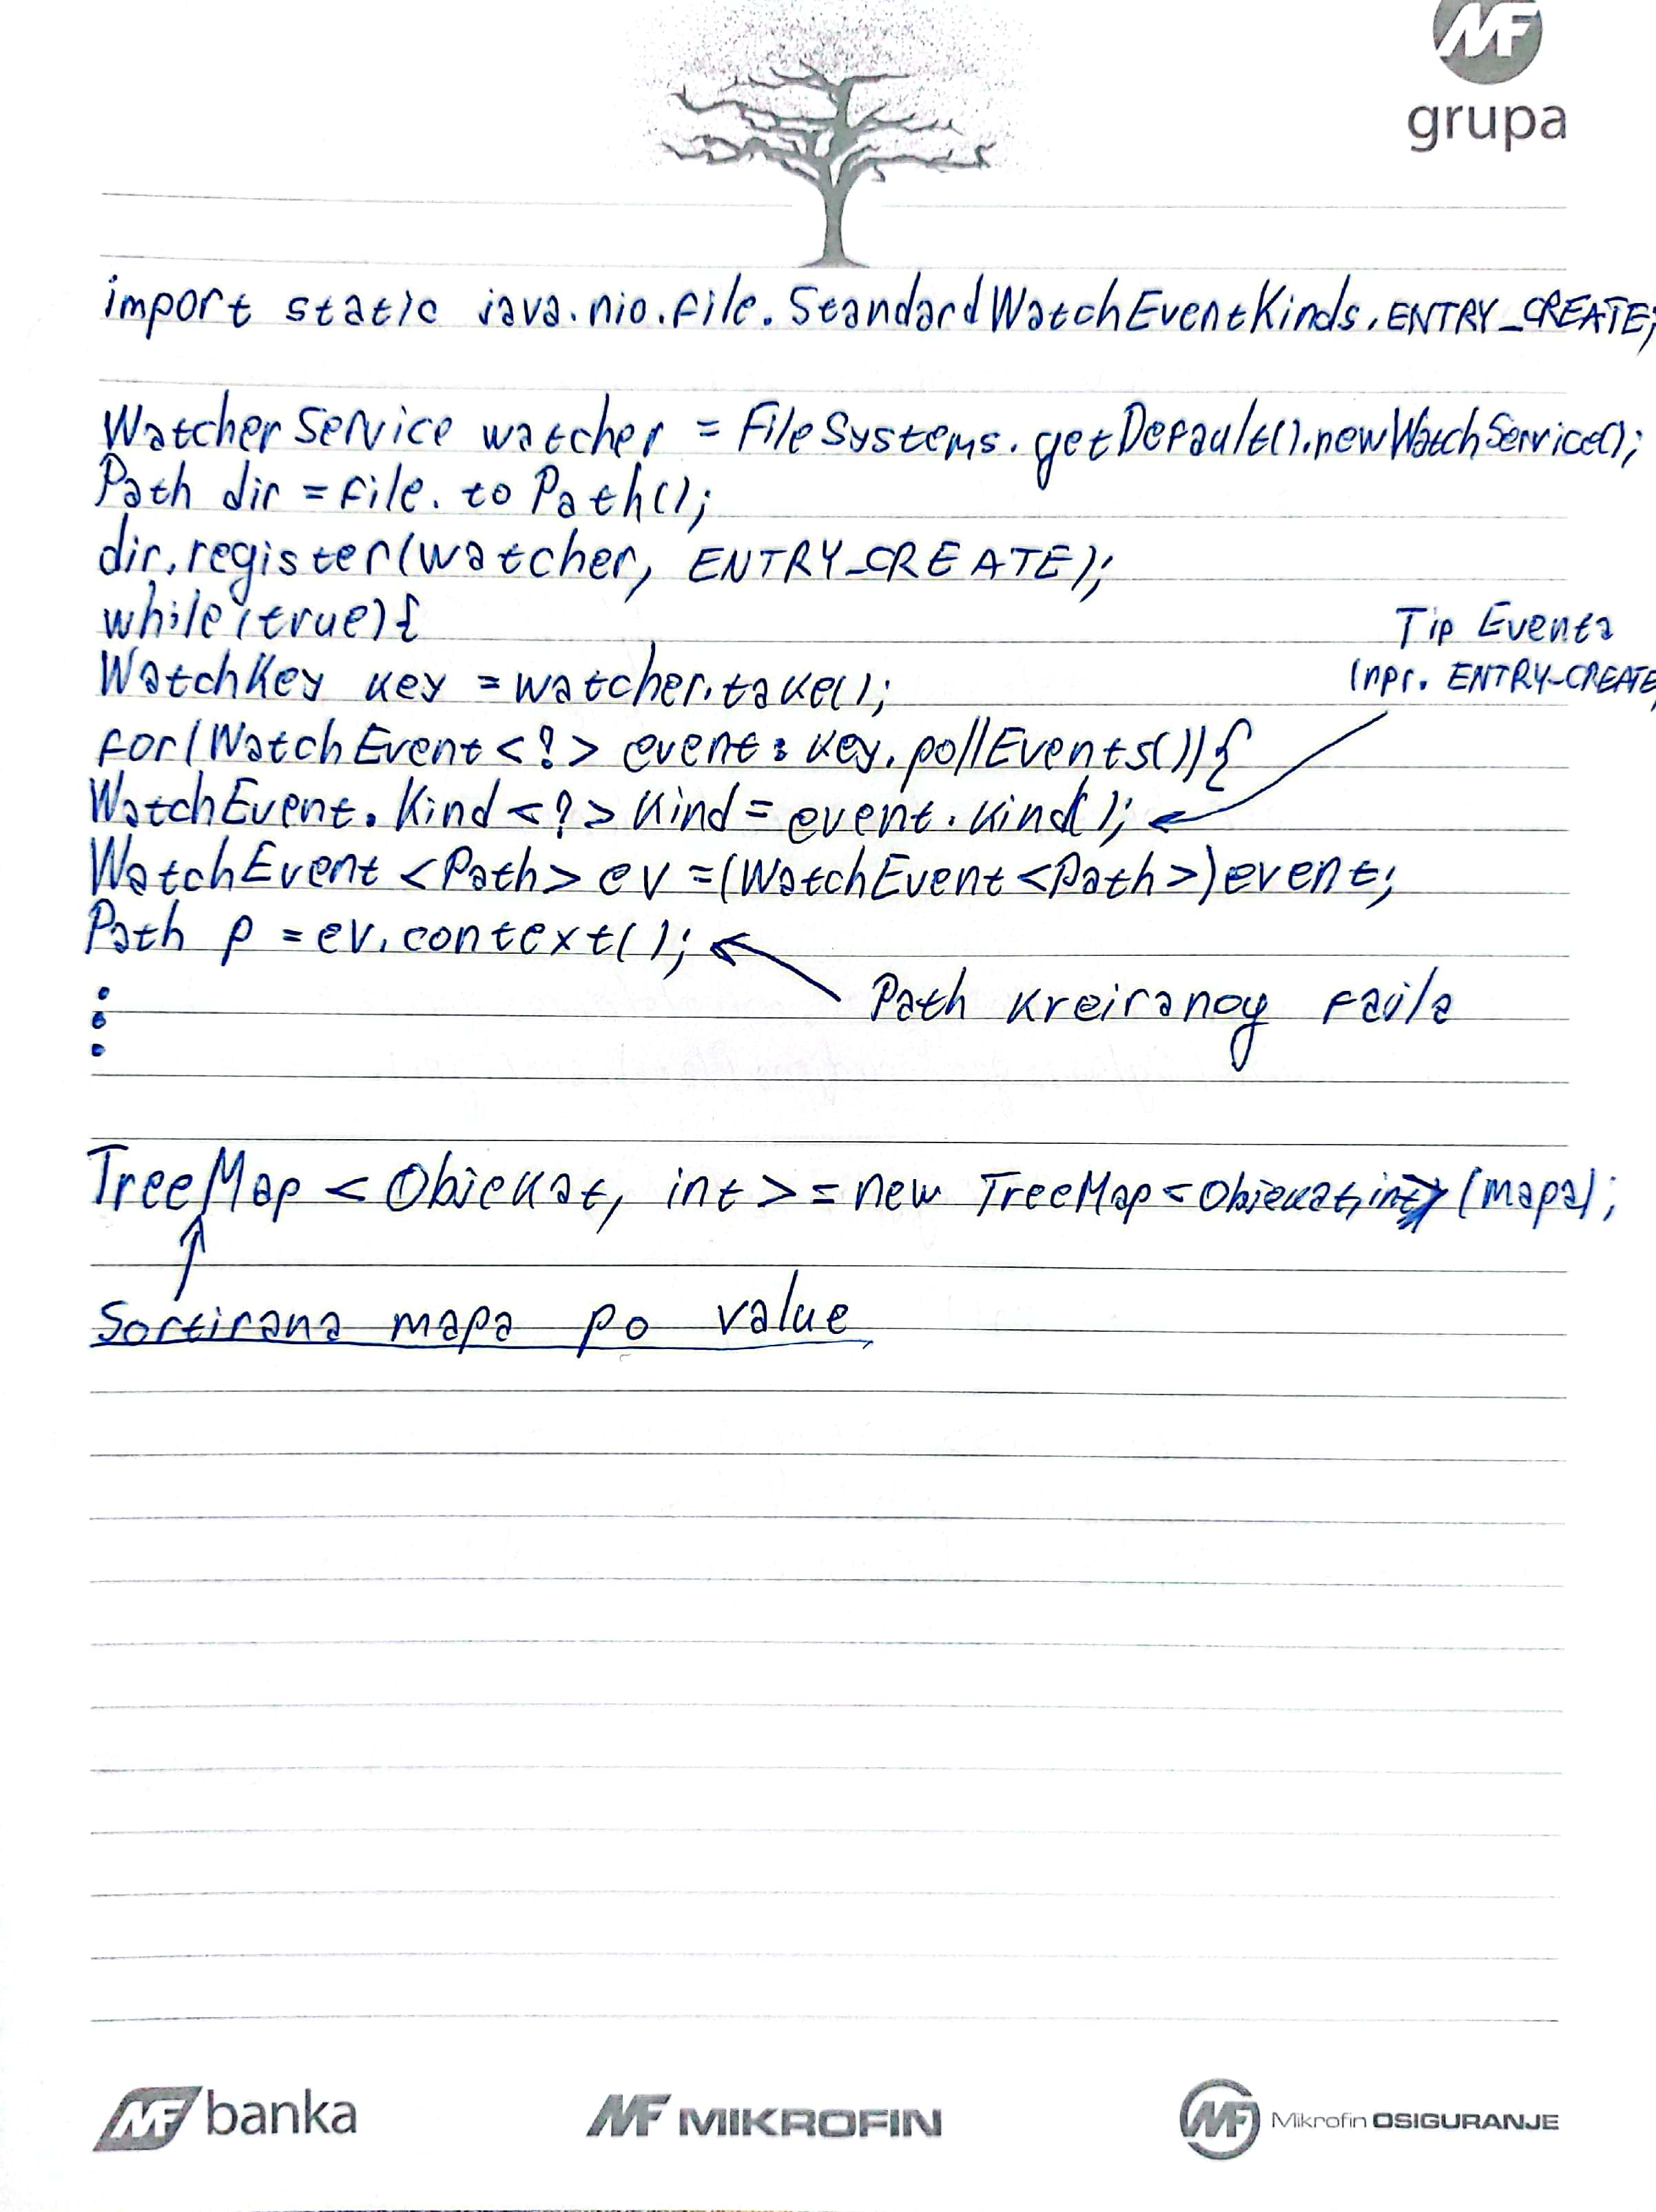 MF
grupa
import static java.nio.file.StandardWatchEventKinds.ENTRY_CREATE;
WatcherService watcher = FileSystems.getDefault().newWatchService();
Path dir = file.toPath();
dir.register(watcher, ENTRY_CREATE);
while(true){
Tip Eventa
(npr. ENTRY_CREATE)
WatchKey key = watcher.take();
for(WatchEvent<?> event : key.pollEvents()){
WatchEvent.Kind<?> kind = event.kind();
WatchEvent<Path> ev = (WatchEvent<Path>)event;
Path p = ev.context();
Path kreiranog fajla
TreeMap<Objekat, int> = new TreeMap<Objekat,int>(mapa);
Sortirana mapa po value
MF banka
MF MIKROFIN
MF Mikrofin OSIGURANJE